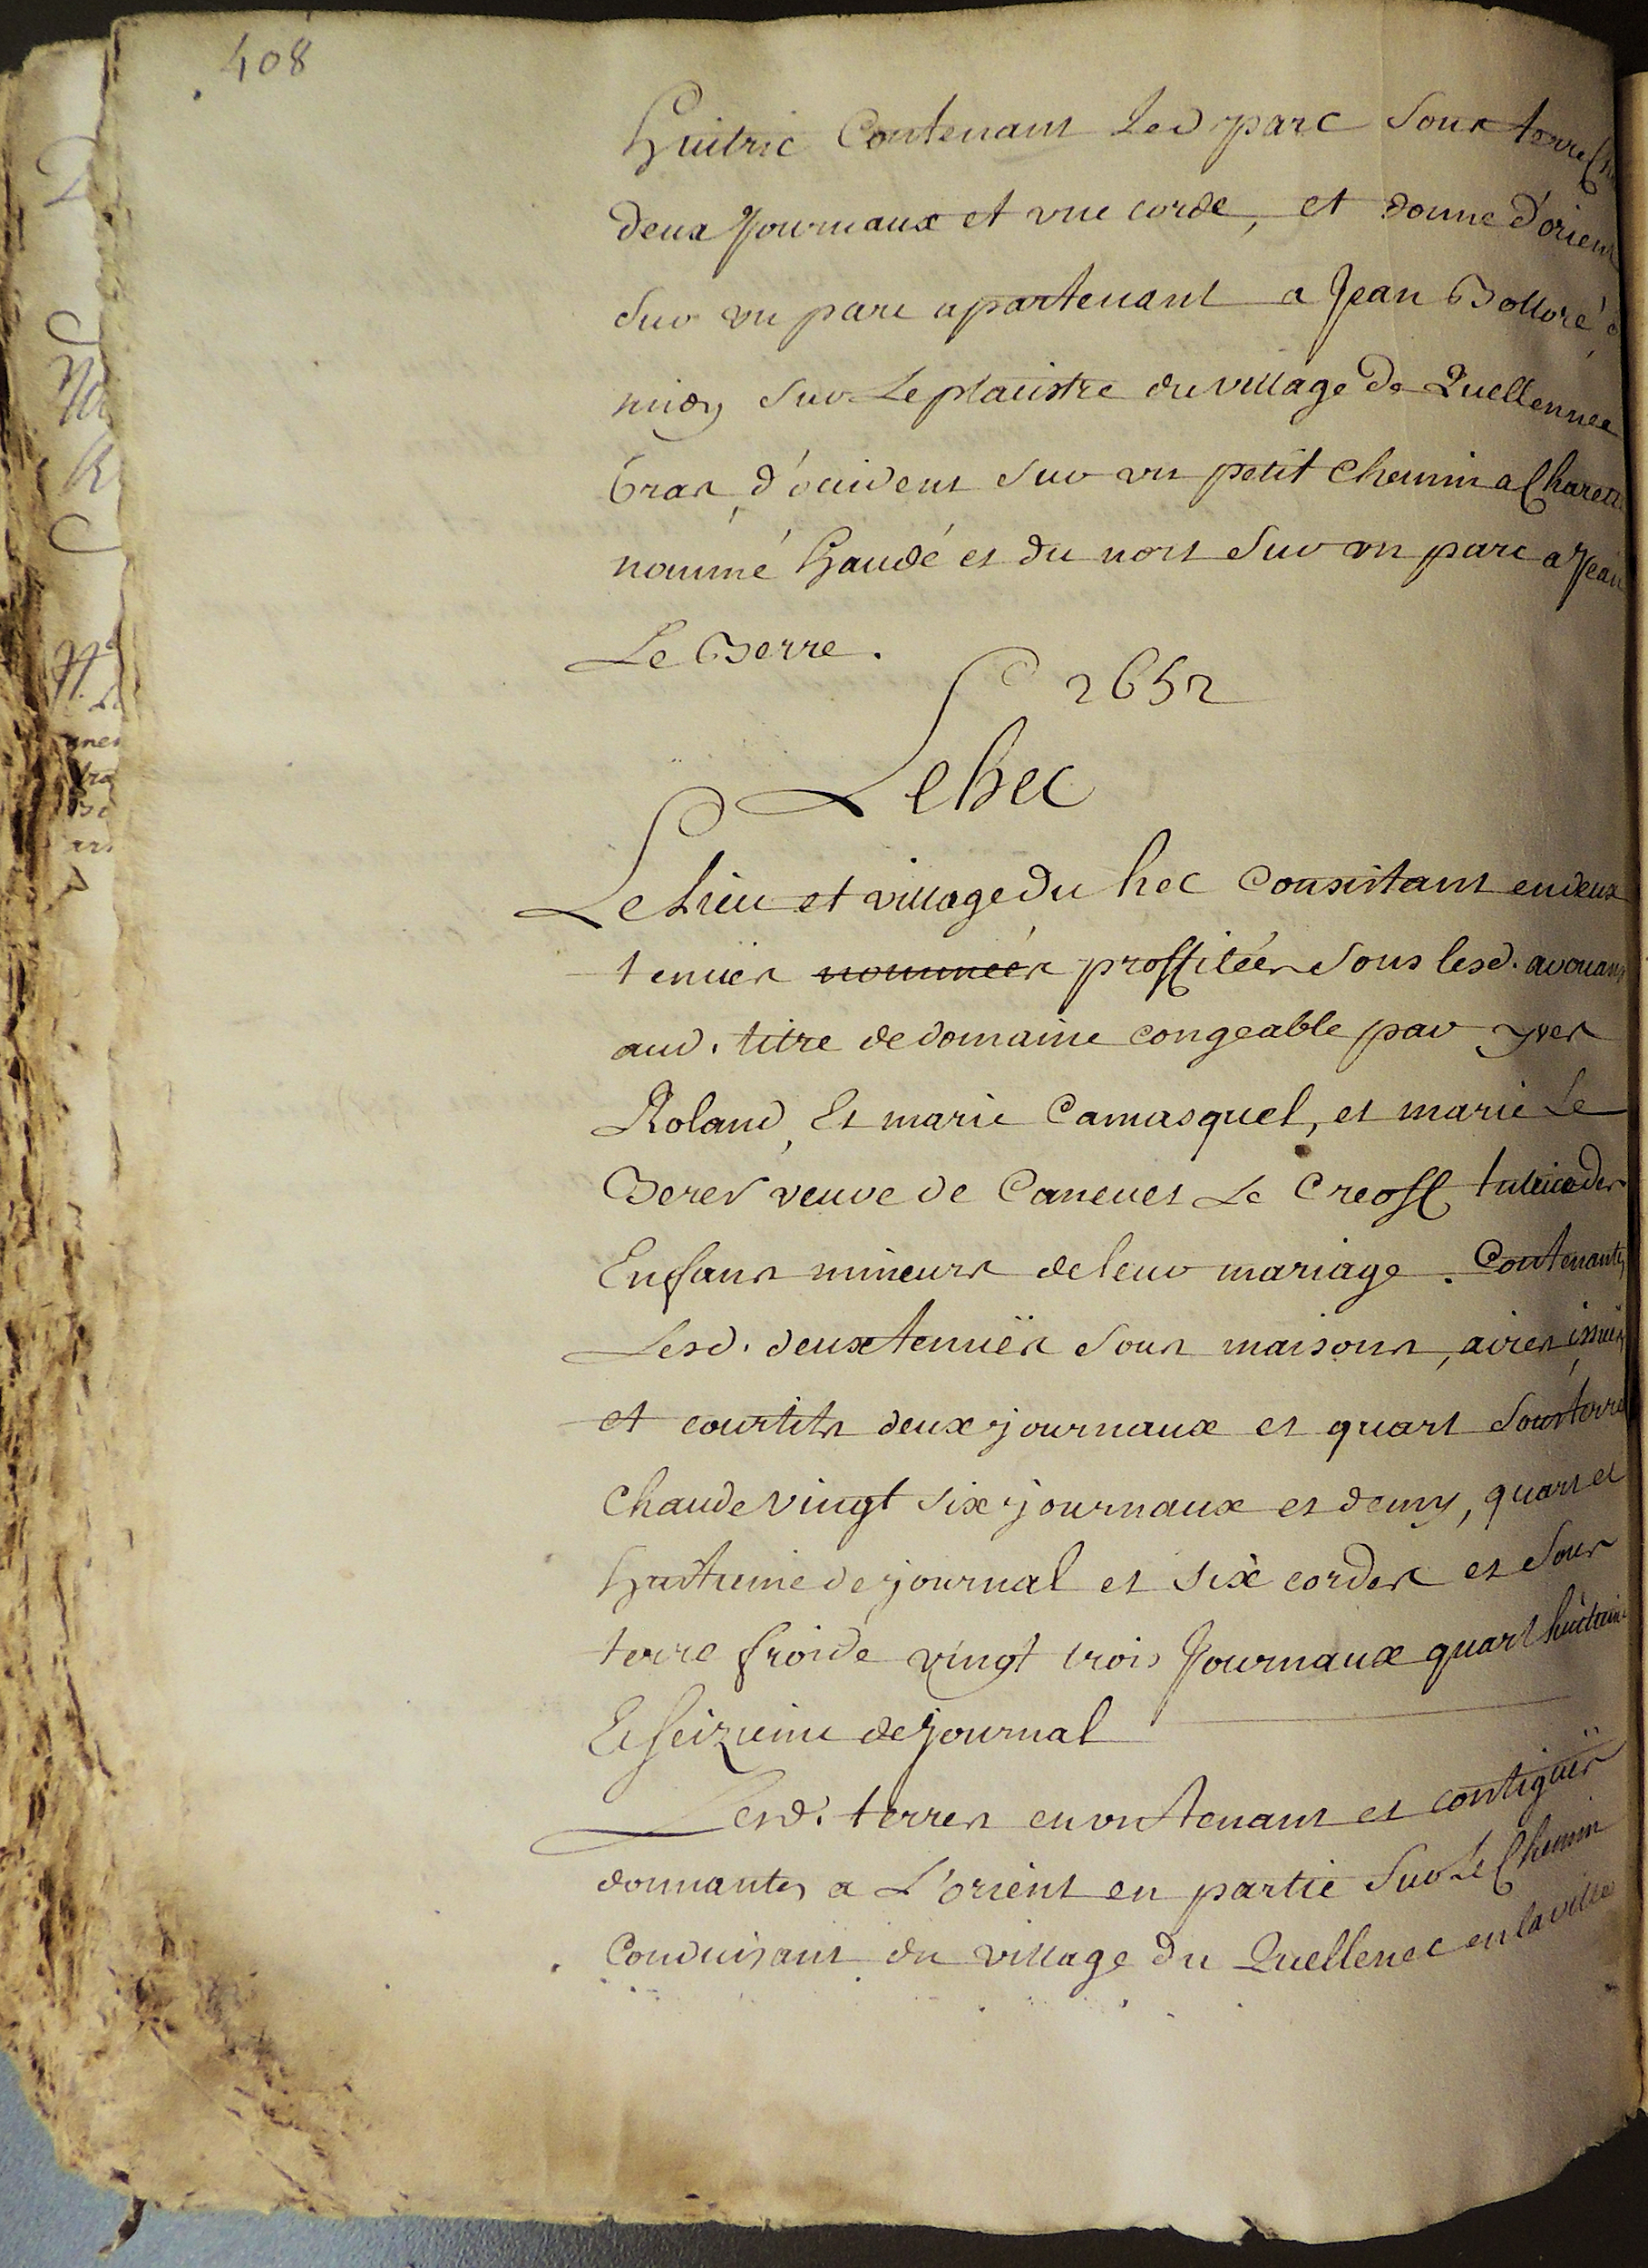 408
huitric Contenant Led parc sous terre
deux Journaux et une corde, et donne d'orient
sur un parc apartenant a Jean Bolloré
midy sur Le placistre du village de Quellennec
bras, d'occident sur un petit chemin a Charette
nommé haudé et du nort sur un parc a Jean
Le Berre.
2652
Le hec
Le Lieu et village du hec Consistant en deux
tenües nommées proffitées sous lesd. avouans
aud. titre de domaine congeable par yves
Roland, Et marie Camasquel, et marie Le
Berer veuve de Caneuet Le Creoff tutrice des
Enfans mineurs de leur mariage. Contenantes
Lesd. deux tenuës sous maisons, aires, issües
et courtils deux journaux et quart sous terre
chaude vingt six journaux et demy, quart et
huitieme de journal et six cordes et sous
terre froide vingt trois Journaux quart huitieme
Et seizieme de journal
Lesd. terres en un tenant et contiguës
donnantes a L'orient en partie sur Le Chemin
Conduisant du village du Quellenec en la ville